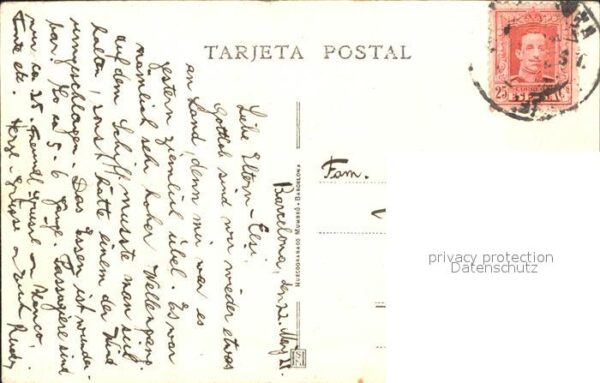 TARJETA POSTAL
Barcelona, den 22. 
Liebe Eltern
Gottlob sind wir wieder etwas
an Land, denn mir war es
gestern ziemlich übel. Es war
nämlich sehr hoher Wellengang.
Auf dem Schiff musste man sich
halten, sonst hätte einem der Wind
umgeschlagen. Das Essen ist wunder-
bar! So ca 5-6 Gänge. Passagiere sind
wir ca 25. Freundl Grüsse
Tante etc. Herzl. Grüsse
Fam.
HUECOGRABADO MUMBRÚ - BARCELONA
25
privacy protection
Datenschutz